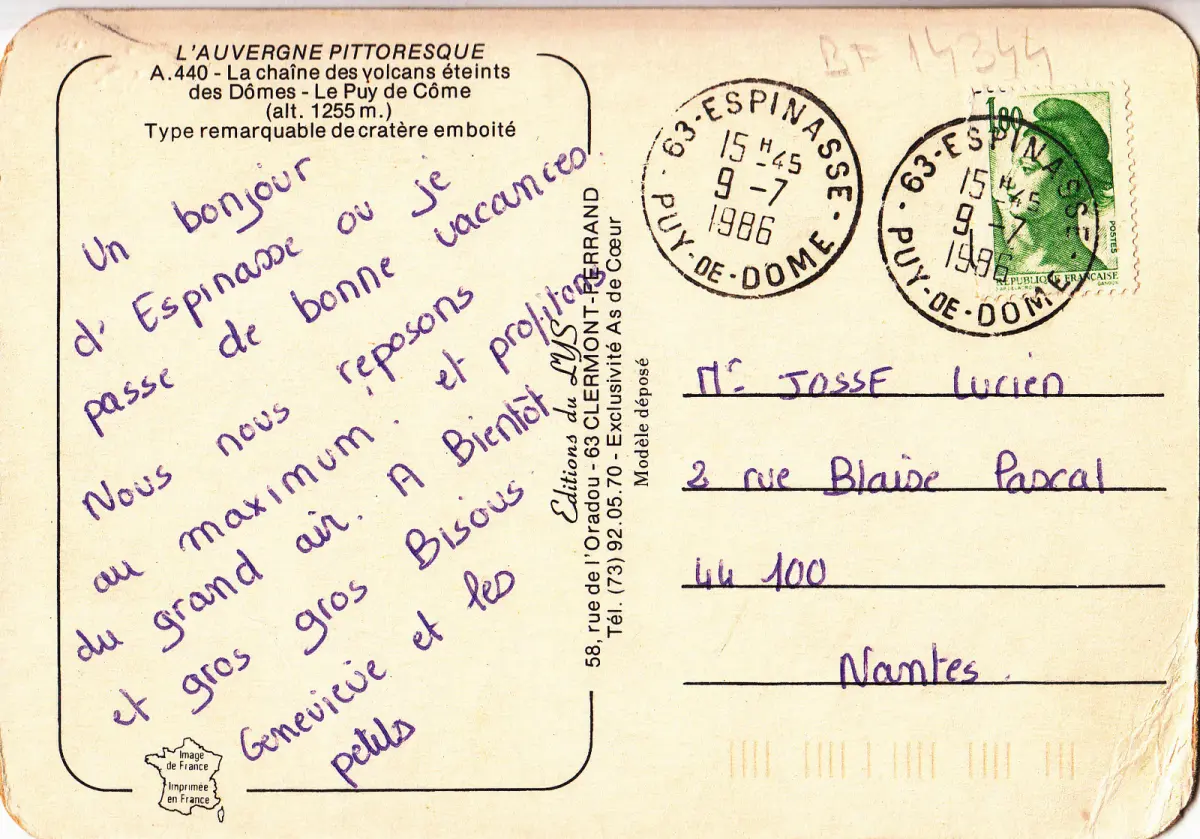 L'AUVERGNE PITTORESQUE
A.440 - La chaîne des volcans éteints
des Dômes - Le Puy de Côme
(alt. 1255 m.)
Type remarquable de cratère emboité
Un bonjour
d' Espinasse ou je
passe de bonne vacances.
Nous nous reposons
au maximum. et profitons
du grand air. A Bientôt
et gros gros Bisous
Geneviève et les
petits
Image
de France
Imprimée
en France
Editions du LYS
58, rue de l'Oradou - 63 CLERMONT-FERRAND
Tél. (73) 92.05.70 - Exclusivité As de Cœur
Modèle déposé
BF 14344
63-ESPINASSE
15 H -45
9 -7
1986
PUY-DE-DOME
63-ESPINASSE
15 H -45
9 -7
1986
PUY-DE-DOME
1,80
POSTES
RÉPUBLIQUE FRANÇAISE
GANDON
Mr JOSSE Lucien
2 rue Blaise Pascal
44 100
Nantes.